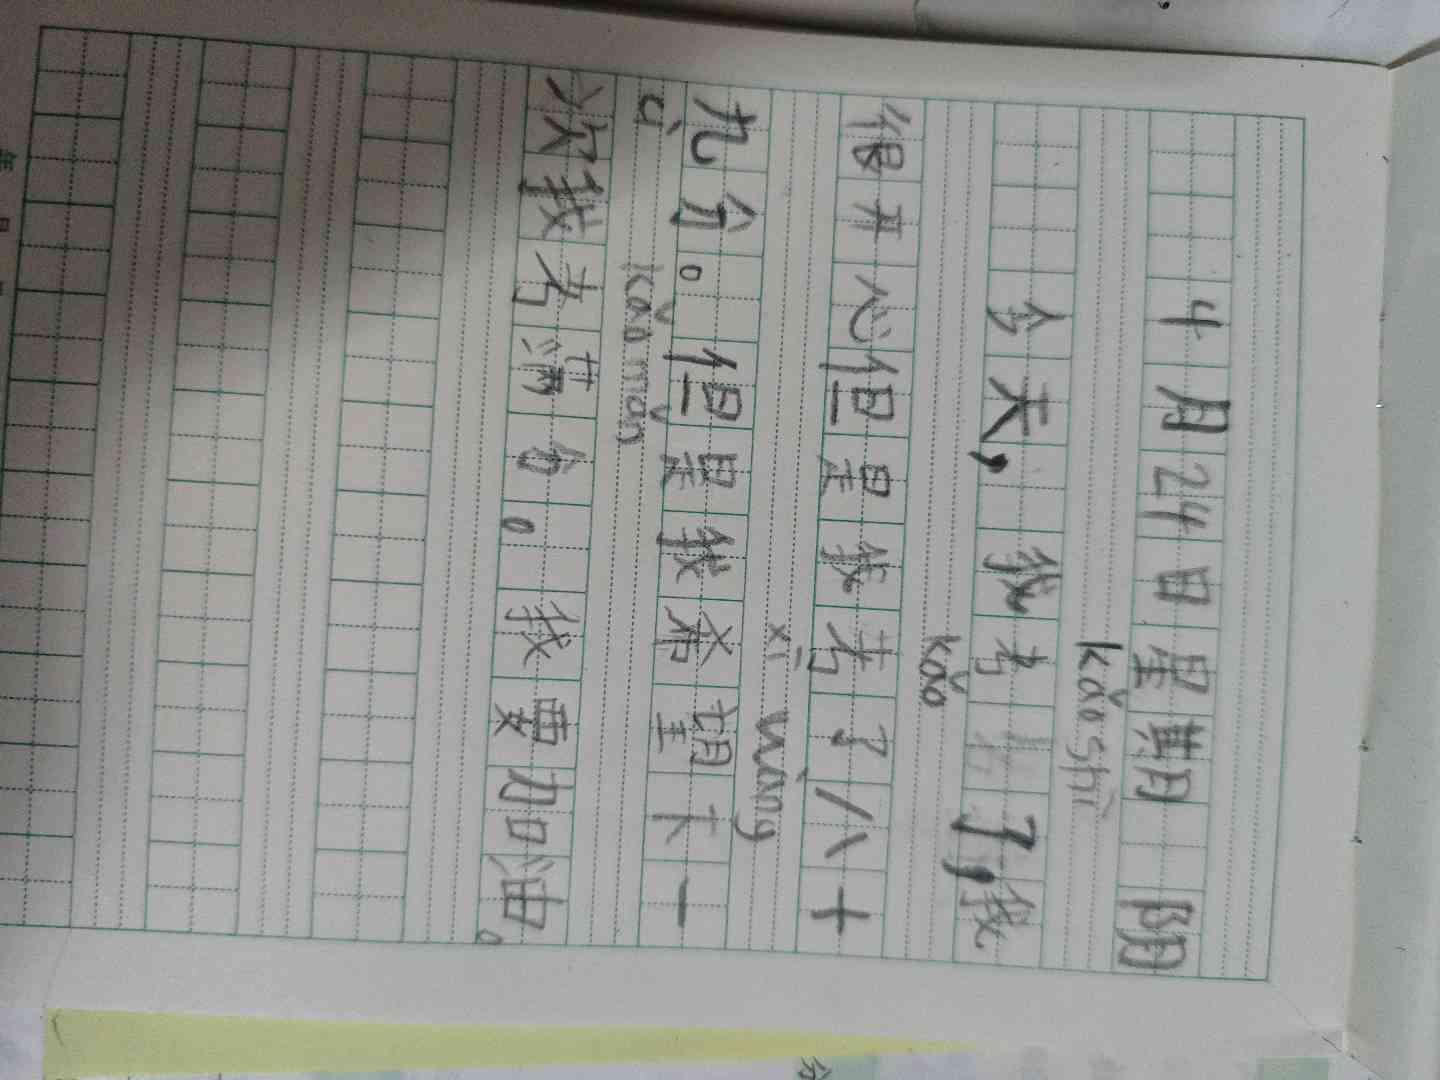 4月24日星期 阴
kǎo shì
今天,我考 了,我
kǎo
很开心但是我考了八十
xī wàng
九分。但是我希望下一
cì kǎo mǎn
次我考满分。我要加油。
年
分